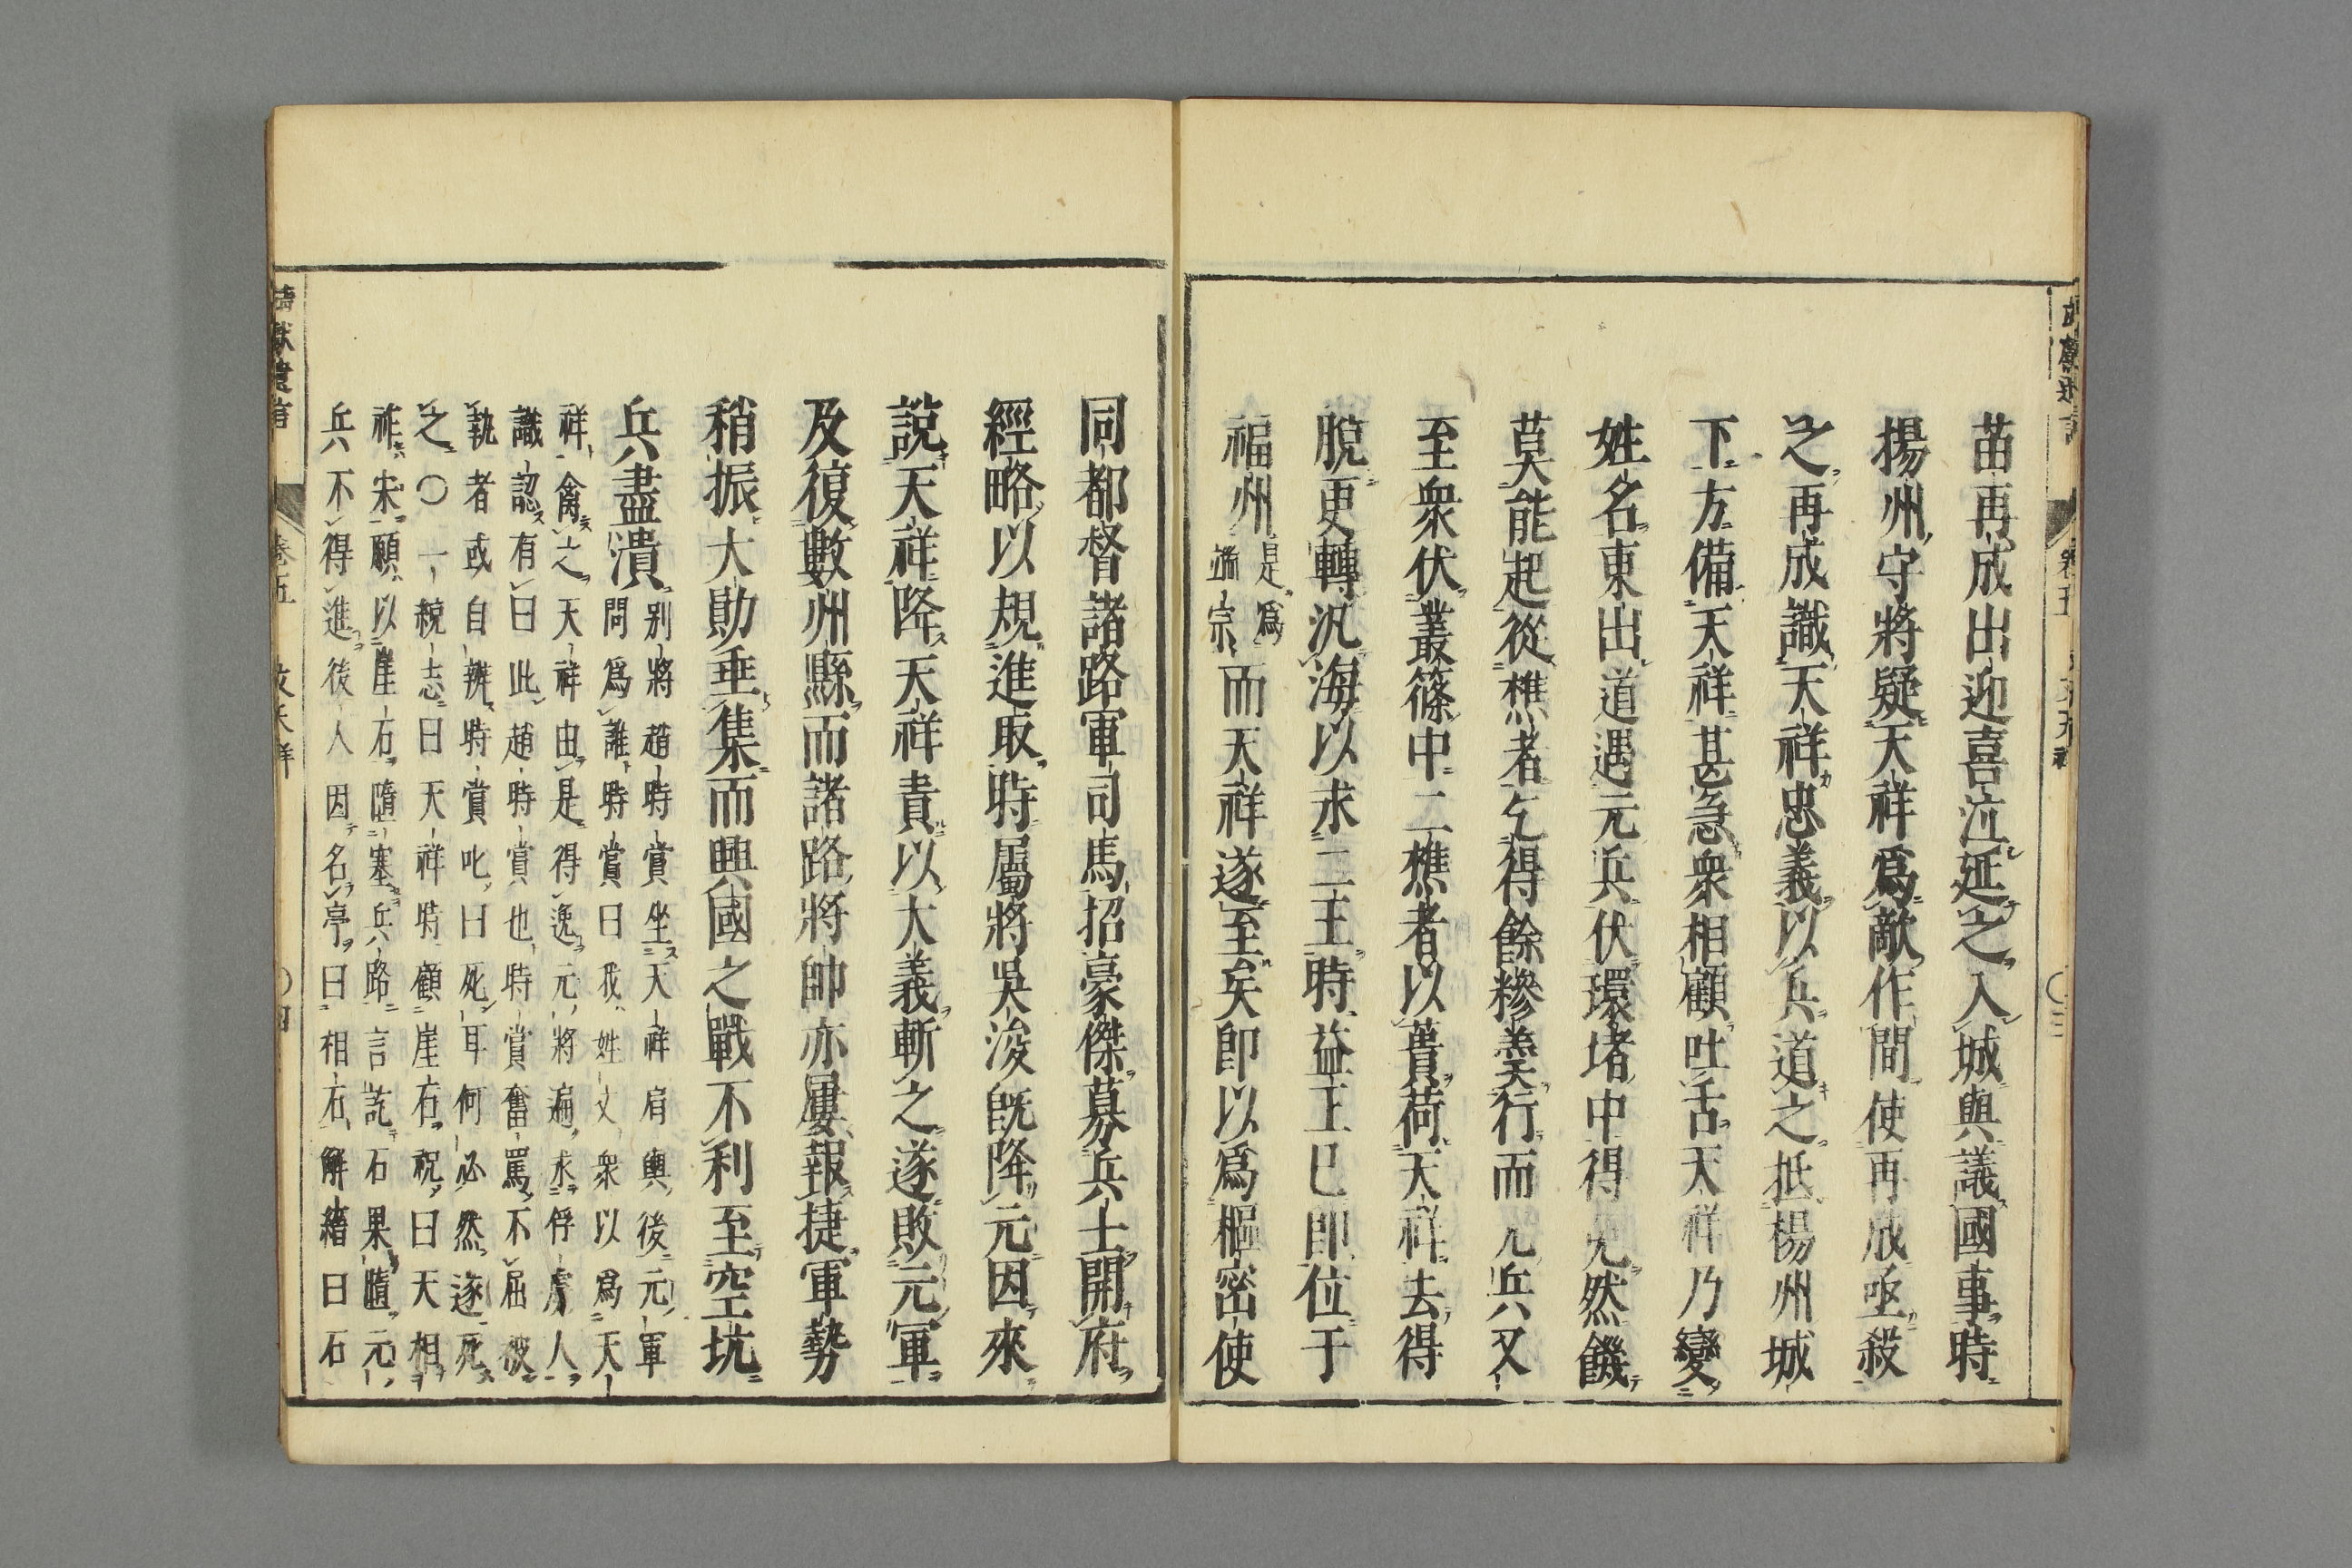 苗再成出迎喜泣延之入城與議國事時
揚州守將疑天祥爲敵作間使再成亟殺
之再成識天祥忠義以兵道之抵楊州城
下方備天祥甚急衆相顧吐舌天祥乃變
姓名東出道遇元兵伏環堵中得免然饑
莫能起從樵者乞得餘糝羹行而元兵又
至衆伏叢篠中二樵者以蕢荷天祥去得
脫更轉汎海以求二王時益王已即位于
福州是爲端宗而天祥遂至矣卽以爲樞密使
同都督諸路軍司馬招豪傑募兵士開府
經略以規進取時屬將吳浚旣降元因來
說天祥降天祥責以大義斬之遂敗元軍
及復數州縣而諸路將帥亦屢報捷軍勢
稍振大勛垂集而興國之戰不利至空坑
兵盡潰别將趙時賞坐天祥肩輿後元軍
問爲誰時賞曰我姓文衆以爲天
祥禽之天祥由是得逸元將遍求俘虜人
識認有曰此趙時賞也時賞奮罵不屈被
執者或自辨時賞叱曰死耳何必然遂死
之〇一統志曰天祥時顧崖石祝曰天相
祚宋願以崖石隨塞兵路言訖石果隨元
兵不得進後人因名亭曰相石解縉曰石
靖獻遺言 卷五 文天祥 〇四